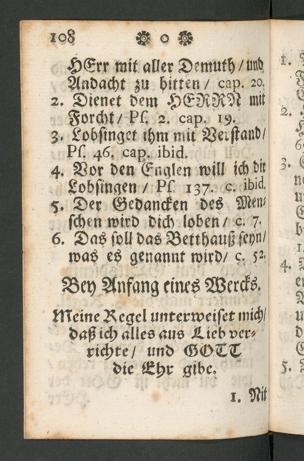 108
HErr mit aller Demuth / und
Andacht zu bitten / cap. 20.
2. Dienet dem HERRN mit
Forcht / Ps. 2. cap. 19.
3. Lobsinget ihm mit Verstand /
Ps. 46. cap. ibid.
4. Vor den Englen will ich dir
Lobsingen / Ps. 137. c. ibid.
5. Der Gedancken des Men
schen wird dich loben / c. 7.
6. Das soll das Betthauß seyn /
was es genannt wird / c. 52.
Bey Anfang eines Wercks.
Meine Regel unterweiset mich /
daß ich alles aus Lieb ver-
richte / und GOTT
die Ehr gibe.
1. Mit